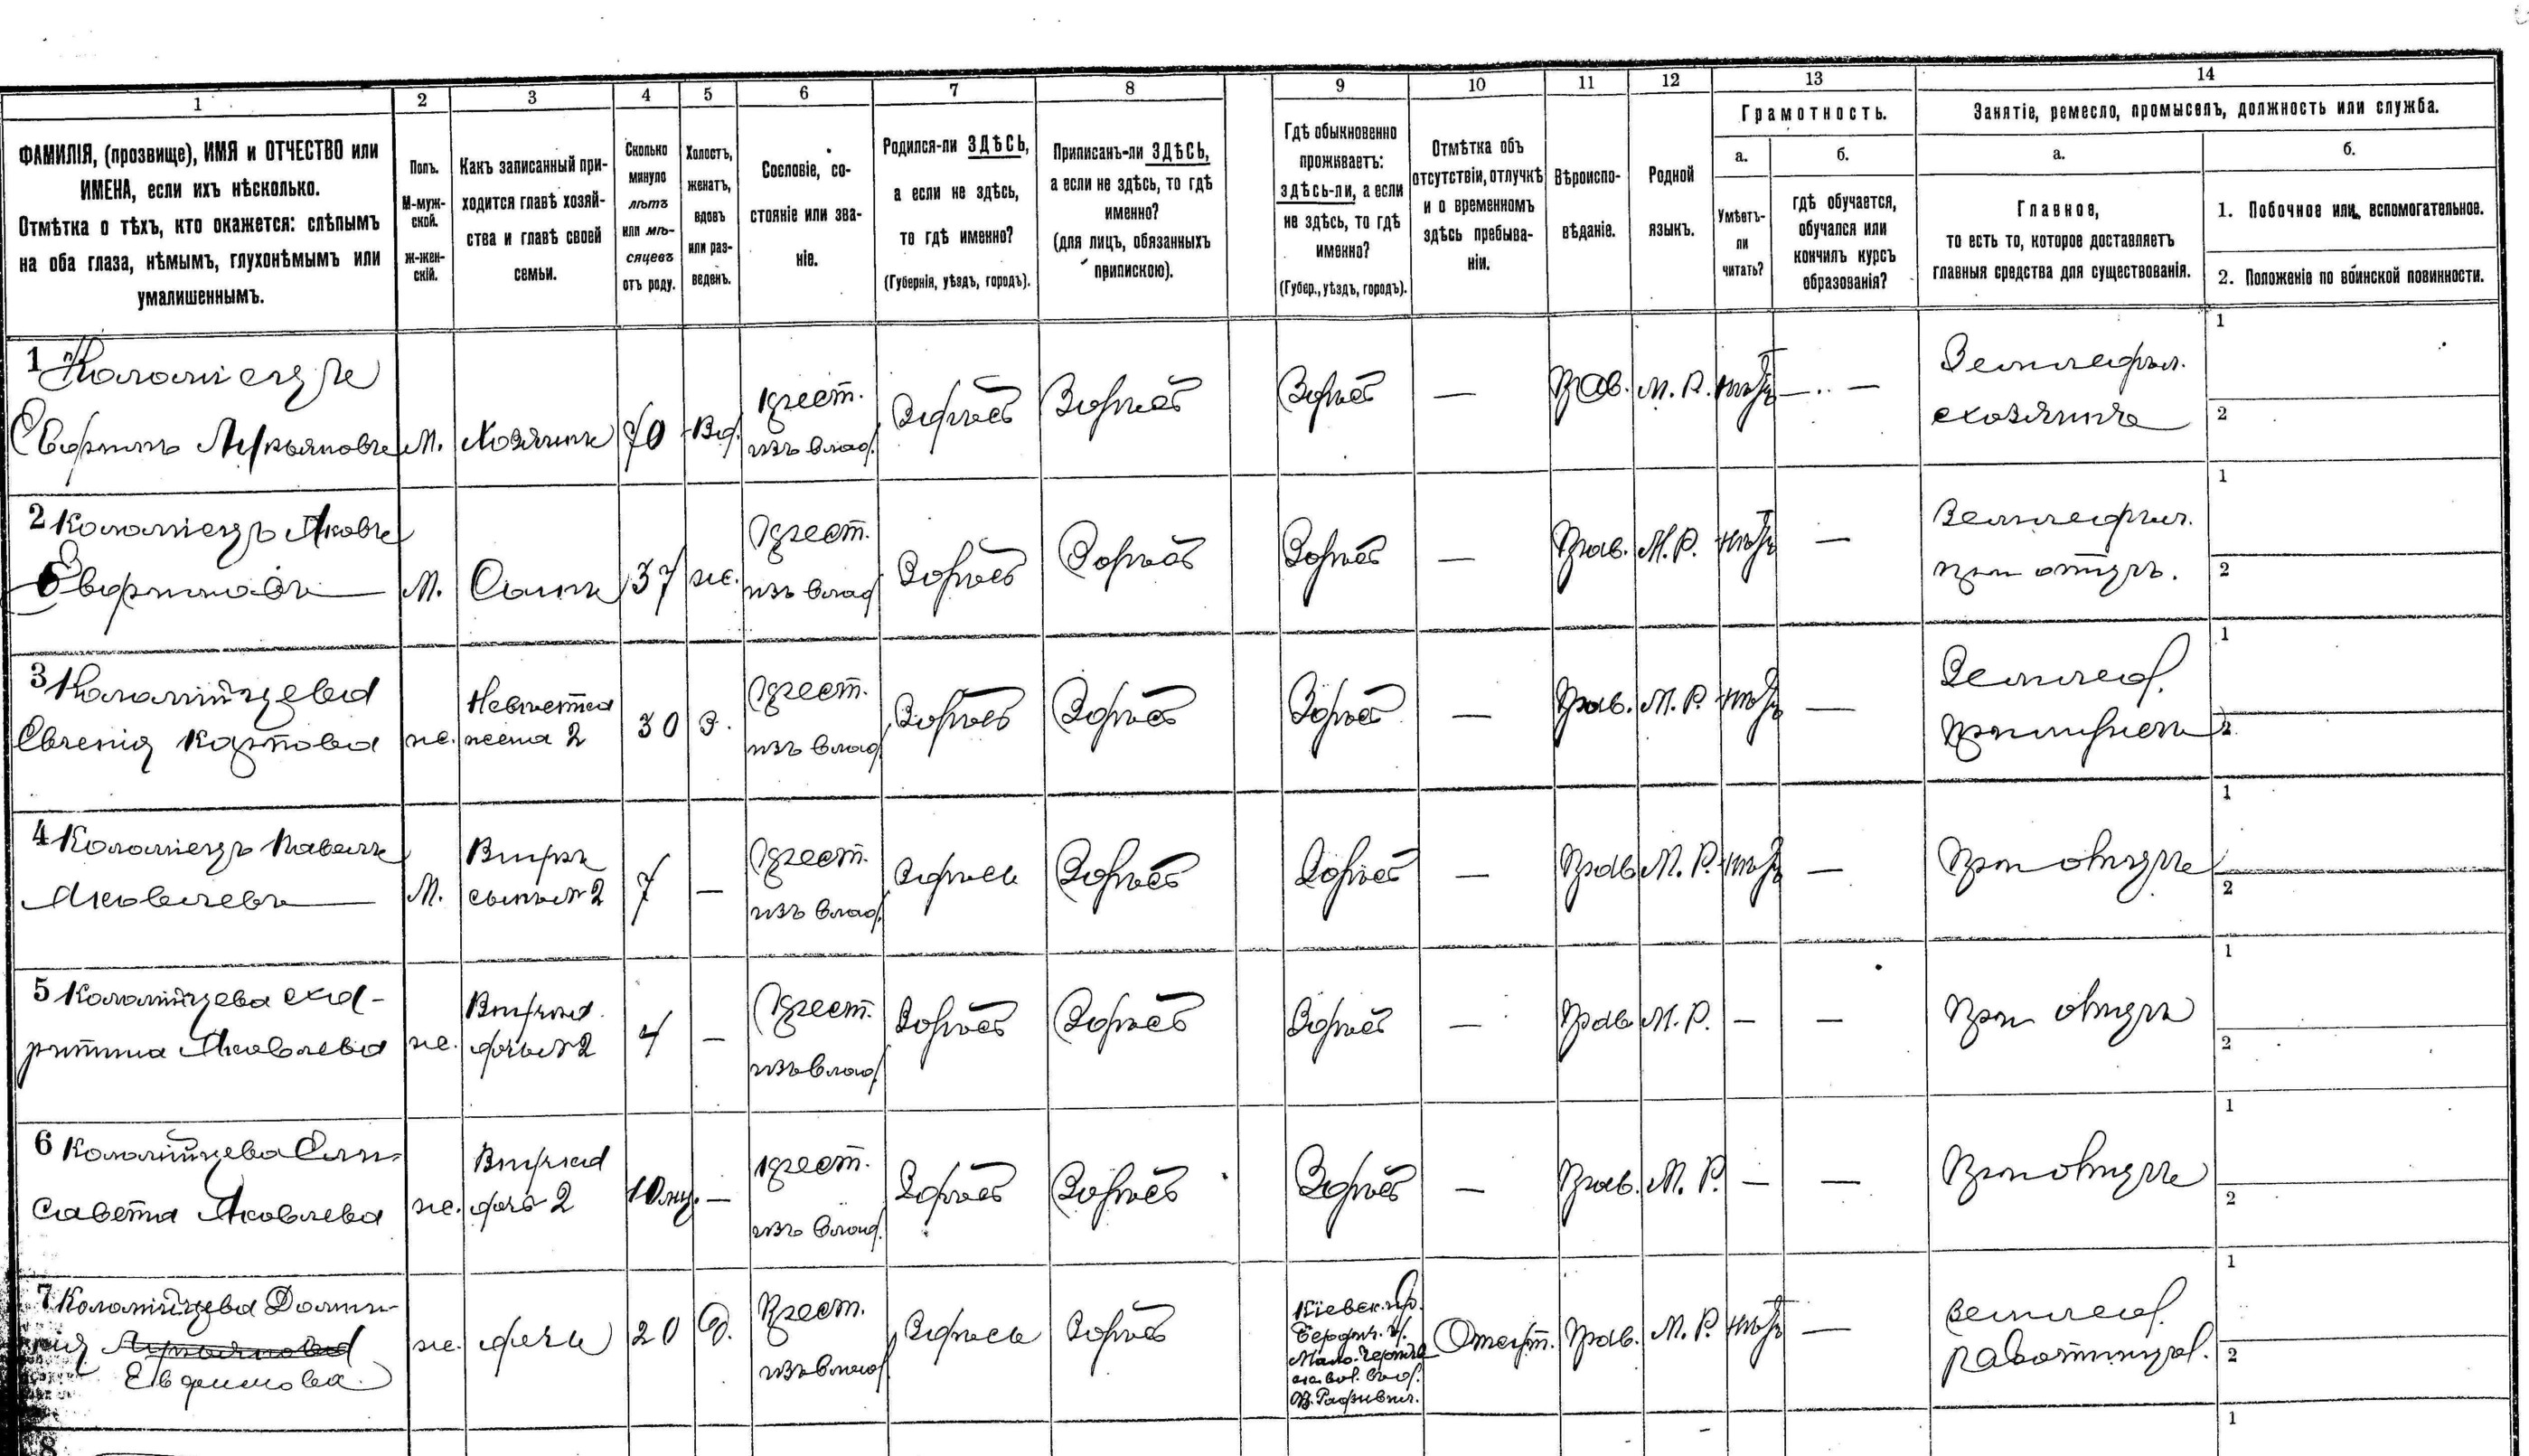 1 2 3 4 5 6 7 8 9 10 11 12 13 14
ФАМИЛІЯ, (прозвище), ИМЯ и ОТЧЕСТВО или
ИМЕНА, если ихъ нѣсколько.
Отмѣтка о тѣхъ, кто окажется: слѣпымъ
на оба глаза, нѣмымъ, глухонѣмымъ или
умалишеннымъ.
Полъ.
М-муж-
ской.
ж-жен-
скій.
Какъ записанный при-
ходится главѣ хозяй-
ства и главѣ своей
семьи.
Сколько
минуло
лѣтъ
или мѣ-
сяцевъ
отъ роду.
Холостъ,
женатъ,
вдовъ
или раз-
веденъ.
Сословіе, со-
стояніе или зва-
ніе.
Родился-ли ЗДѢСЬ,
а если не здѣсь,
то гдѣ именно?
(Губернія, уѣздъ, городъ).
Приписанъ-ли ЗДѢСЬ,
а если не здѣсь, то гдѣ
именно?
(для лицъ, обязанныхъ
припискою).
Гдѣ обыкновенно
проживаетъ:
здѣсь-ли, а если
не здѣсь, то гдѣ
именно?
(Губер., уѣздъ, городъ).
Отмѣтка объ
отсутствіи, отлучкѣ
и о временномъ
здѣсь пребыва-
ніи.
Вѣроиспо-
вѣданіе.
Родной
языкъ.
Грамотность.
а.
Умѣетъ-
ли
читать?
б.
гдѣ обучается,
обучался или
кончилъ курсъ
образованія?
Занятіе, ремесло, промыселъ, должность или служба.
а.
Главное,
то есть то, которое доставляетъ
главныя средства для существованія.
б.
1. Побочное или вспомогательное.
2. Положеніе по воинской повинности.
1 Коломіецъ крест. Здѣсь Здѣсь Здѣсь — Прав. М. Р. нѣтъ — Земледѣл. 1
Евфимъ М. Хозяинъ 70 Вд. изъ влад. хозяинъ 2
2 Коломіецъ Яковъ Крест. Здѣсь Здѣсь Здѣсь — Прав. М. Р. нѣтъ — Земледѣл. 1
Евфимовъ М. Сынъ 37 ж. изъ влад. при отцѣ. 2
3 Коломійцева Невѣстка Крест. Здѣсь Здѣсь Здѣсь — Прав. М. Р. нѣтъ — Землед. 1
Евгенія Карпова ж. жена 2 30 З. изъ влад. при мужѣ 2
4 Коломіецъ Павелъ Внукъ Крест. Здѣсь Здѣсь Здѣсь — Прав. М. Р. нѣтъ — При отцѣ 1
Яковлевъ М. сынъ 2 7 — изъ влад. 2
5 Коломійцева Хар- Внучка Крест. Здѣсь Здѣсь Здѣсь — Прав. М. Р. — — При отцѣ 1
ритина Яковлева ж. дочь 2 4 — изъ влад. 2
6 Коломійцева Ели- Внучка крест. Здѣсь Здѣсь Здѣсь — Прав. М. Р. — — При отцѣ 1
савета Яковлева ж. дочь 2 10 мц. — изъ влад. 2
7 Коломійцева Доми- Крест. Здѣсь Здѣсь Кіевск. губ. Отсут. Прав. М. Р. нѣтъ — Землед. 1
кія ж. дочь 20 Д. изъ влад. Бердич. у. работница. 2
Евфимова
8 1